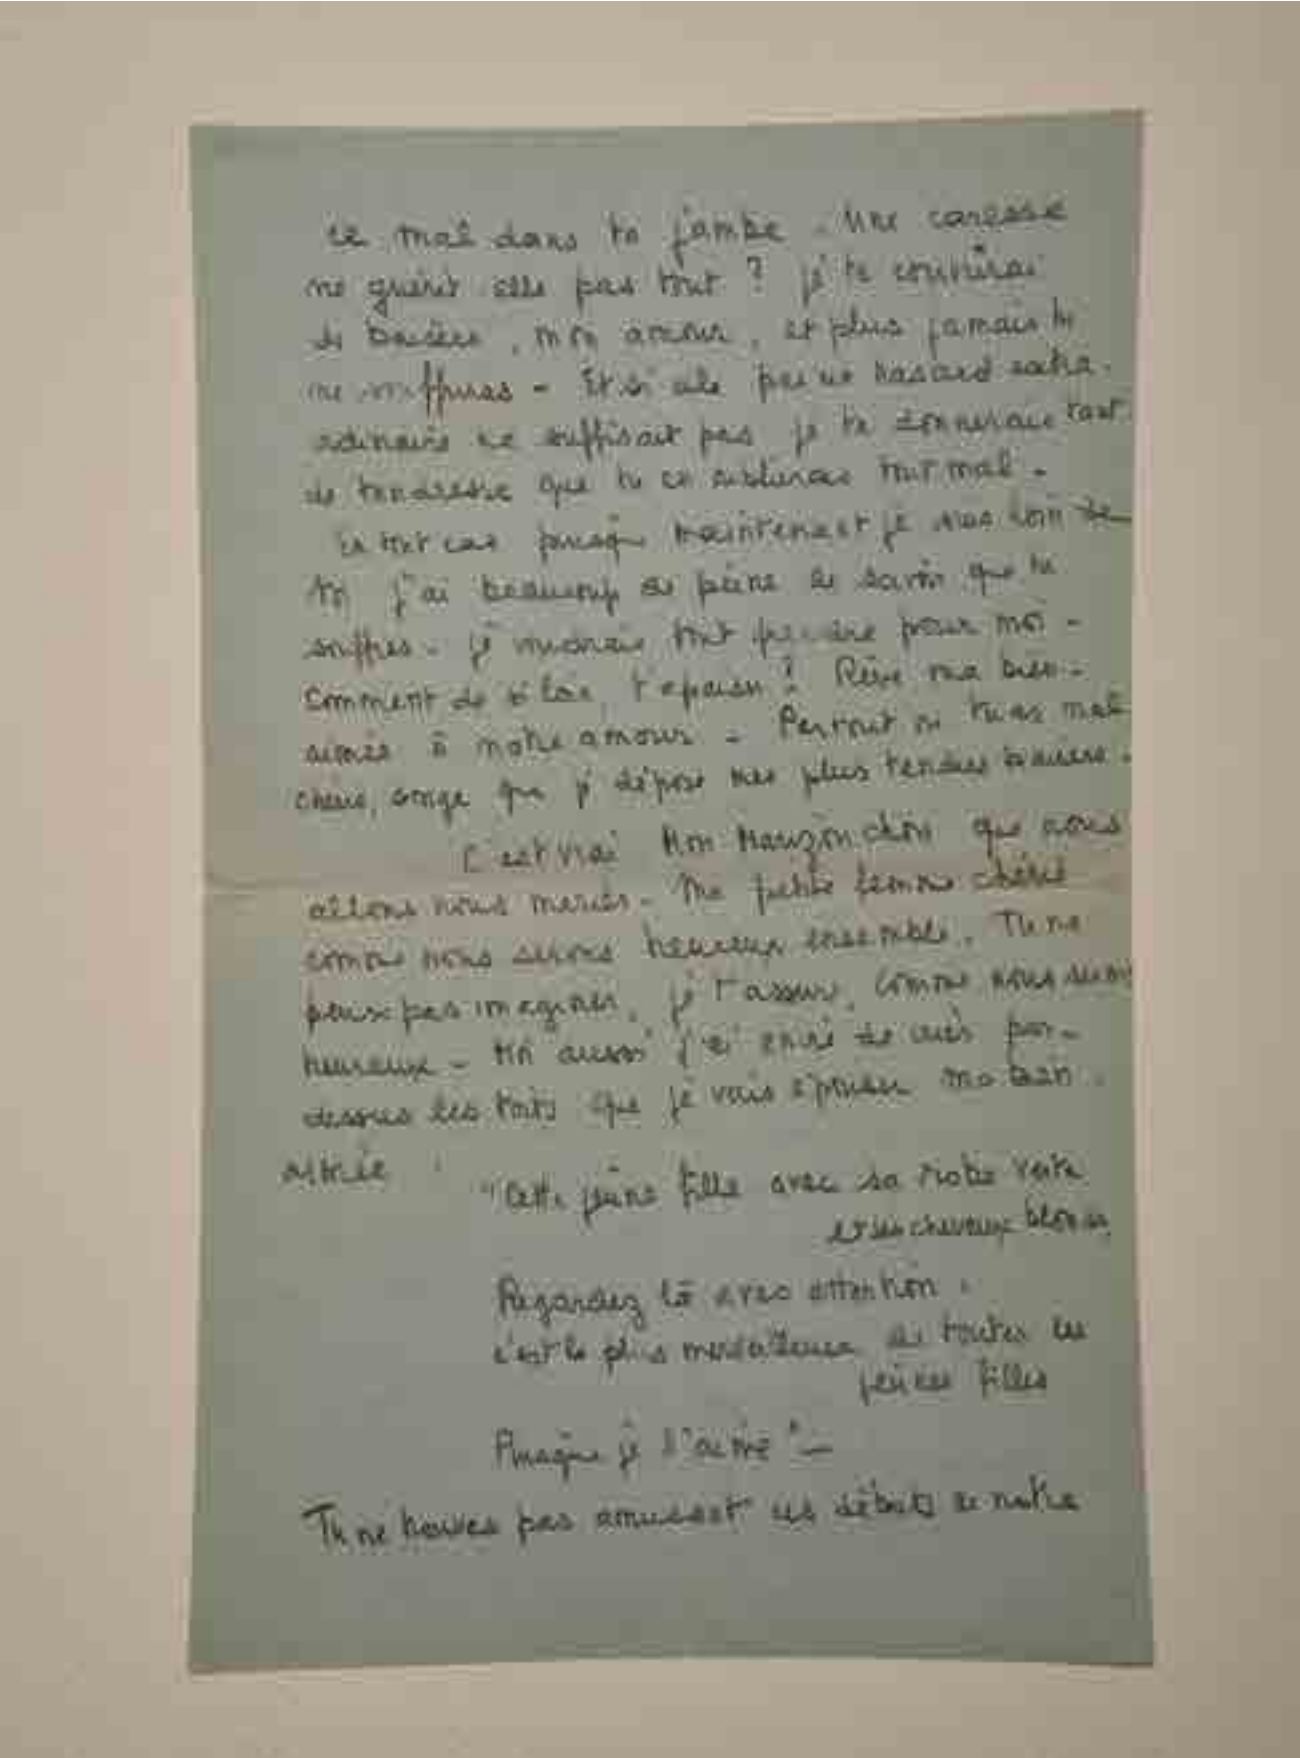 ce mal dans ta jambe. Une caresse
ne guérit elle pas tout ? je te couvrirai
de baisers, mon amour, et plus jamais tu
ne souffriras - Et si cela par un hasard extra-
ordinaire ne suffisait pas je te donnerais tant
de tendresse que tu en oublieras tout mal -
En tout cas puisque maintenant je suis loin de
toi j'ai beaucoup de peine de savoir que tu
souffres - je voudrais tout prendre pour moi -
Comment de si loin, t'apaiser ? Rêve ma bien-
aimée à notre amour - Partout où tu as mal
chérie, songe que je dépose mes plus tendres baisers.
C'est vrai Mon chou que nous
allons nous marier - Ma petite femme chérie
comme nous serons heureux ensemble. Tu ne
peux pas imaginer, je t'assure, comme nous serons
heureux - Moi aussi j'ai envie de crier par-
dessus les toits que je vais épouser ma bien
aimée
"Cette jeune fille avec sa robe verte
et ses cheveux blonds,
Regardez la avec attention.
c'est la plus merveilleuse de toutes les
jeunes filles
Puisque je l'aime" -
Tu ne trouves pas amusant ces débuts de notre